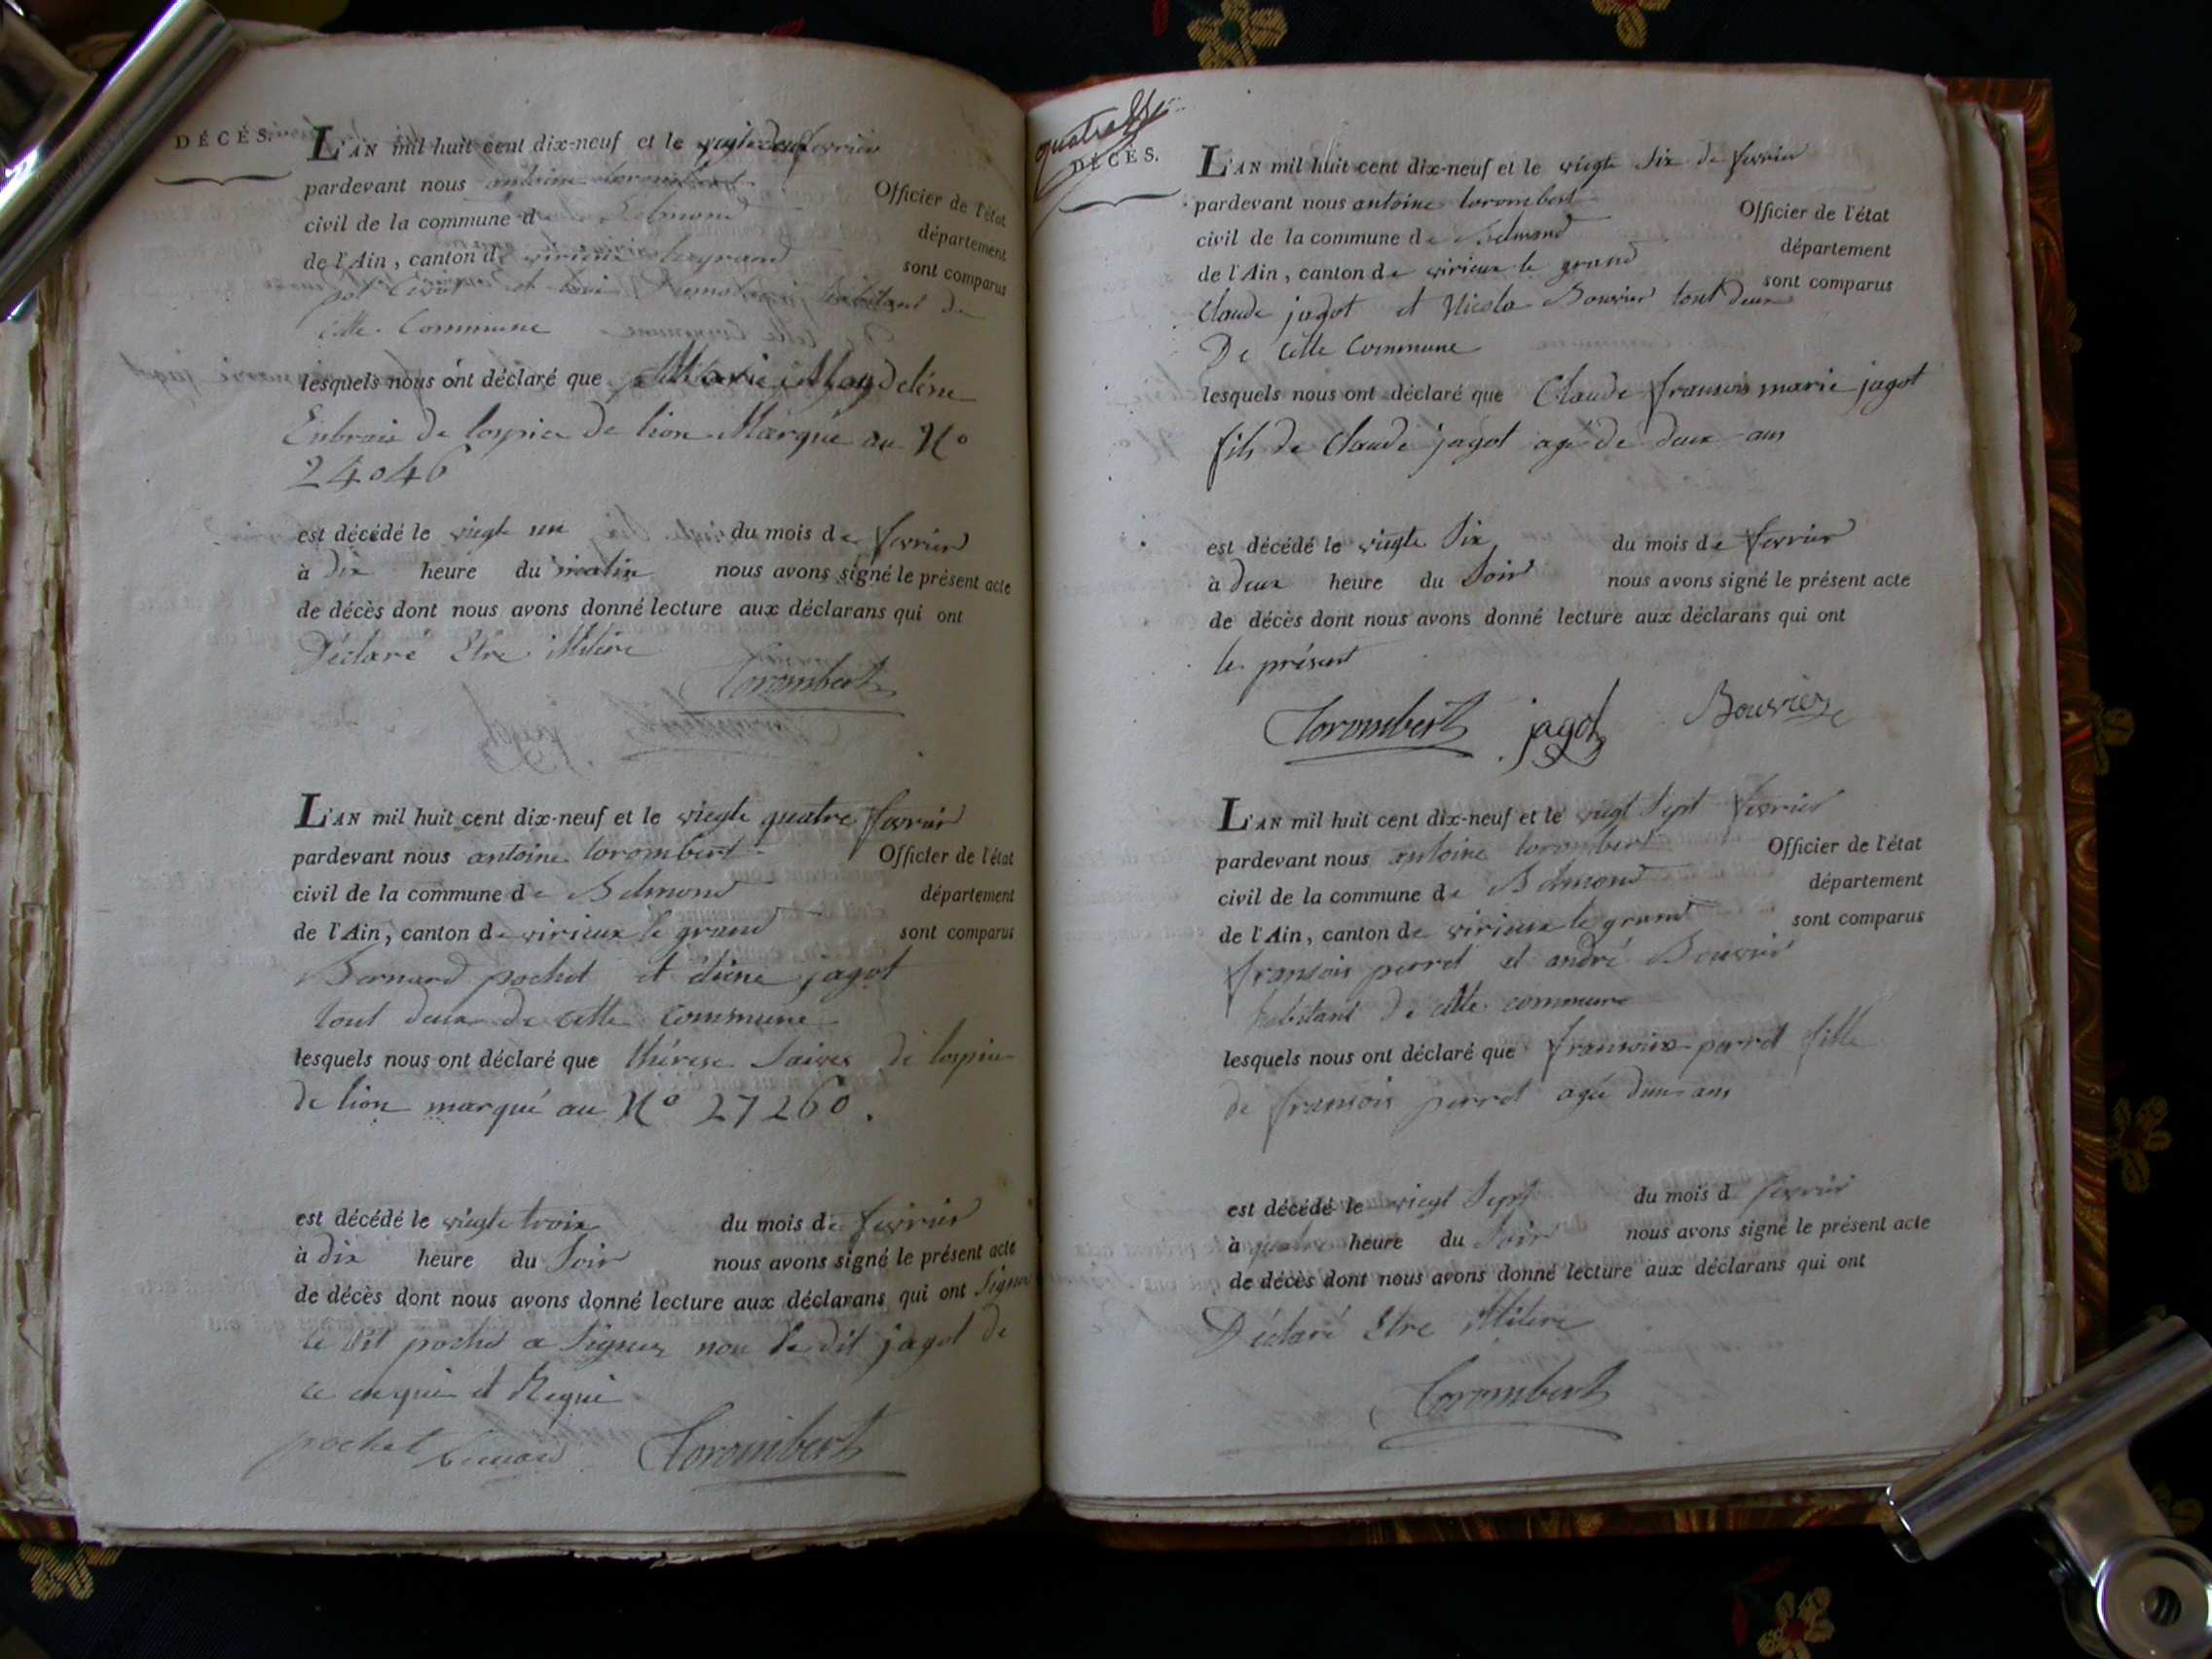 DÉCÈS.
L'AN mil huit cent dix-neuf et le fevrier
pardevant nous antoine torombert Officier de l'état
civil de la commune de Belmond département
de l'Ain, canton de virieux le grand sont comparus
et habitant de
cette Commune
lesquels nous ont déclaré que Marie Magdeléne
de lospice de lion Marque au N°
24046
est décédé le viegt un du mois de fevrier
à dix heure du matin nous avons signé le présent acte
de décès dont nous avons donné lecture aux déclarans qui ont
Déclaré Etre illitére
torombert
L'AN mil huit cent dix-neuf et le viegte quatre fevrier
pardevant nous antoine torombert Officier de l'état
civil de la commune de Belmond département
de l'Ain, canton de virieux le grand sont comparus
Bernard pochet et jagot
tout deux de cette Commune
lesquels nous ont déclaré que thérese de lospice
de lion marqué au N° 27260.
est décédé le viegte trois du mois de fevrier
à dix heure du Soir nous avons signé le présent acte
de décès dont nous avons donné lecture aux déclarans qui ont Signer
le dit pochet a Signer non le dit jagot de
ce enquis et Requi
pochet bernard torombert
DÉCÈS.
L'AN mil huit cent dix-neuf et le viegte Six de fevrier
pardevant nous antoine torombert Officier de l'état
civil de la commune de Belmond département
de l'Ain, canton de virieux le grand sont comparus
Claude jagot et Nicola Bouvier tout deux
De cette Commune
lesquels nous ont déclaré que Claude fransois marie jagot
fils de Claude jagot agé de deux ans
est décédé le viegte Six du mois de fevrier
à deux heure du Soir nous avons signé le présent acte
de décès dont nous avons donné lecture aux déclarans qui ont
le présent
torombert jagot Bouvier
L'AN mil huit cent dix-neuf et le viegt Sept fevrier
pardevant nous antoine torombert Officier de l'état
civil de la commune de Belmond département
de l'Ain, canton de virieux le grand sont comparus
fransois perret et andré Bouvier
habitant De cette commune
lesquels nous ont déclaré que fransoise perret fille
de fransois perret agée dun ans
est décédé le viegt Sept du mois de fevrier
à quatre heure du Soir nous avons signé le présent acte
de décès dont nous avons donné lecture aux déclarans qui ont
Déclaré Etre illitére
torombert